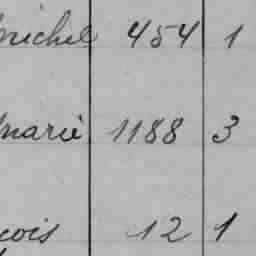 michel 454 1
marie 1188 3
çois 12 1